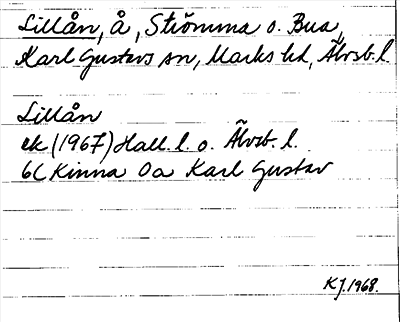 Lillån, å, Strömma o. Bua,
Karl Gustavs sn, Marks hd, Älvsb. l.
Lillån
ek (1967) Hall. l. o. Älvsb. l.
6C Kinna 0a Karl Gustav
KJ. 1968.